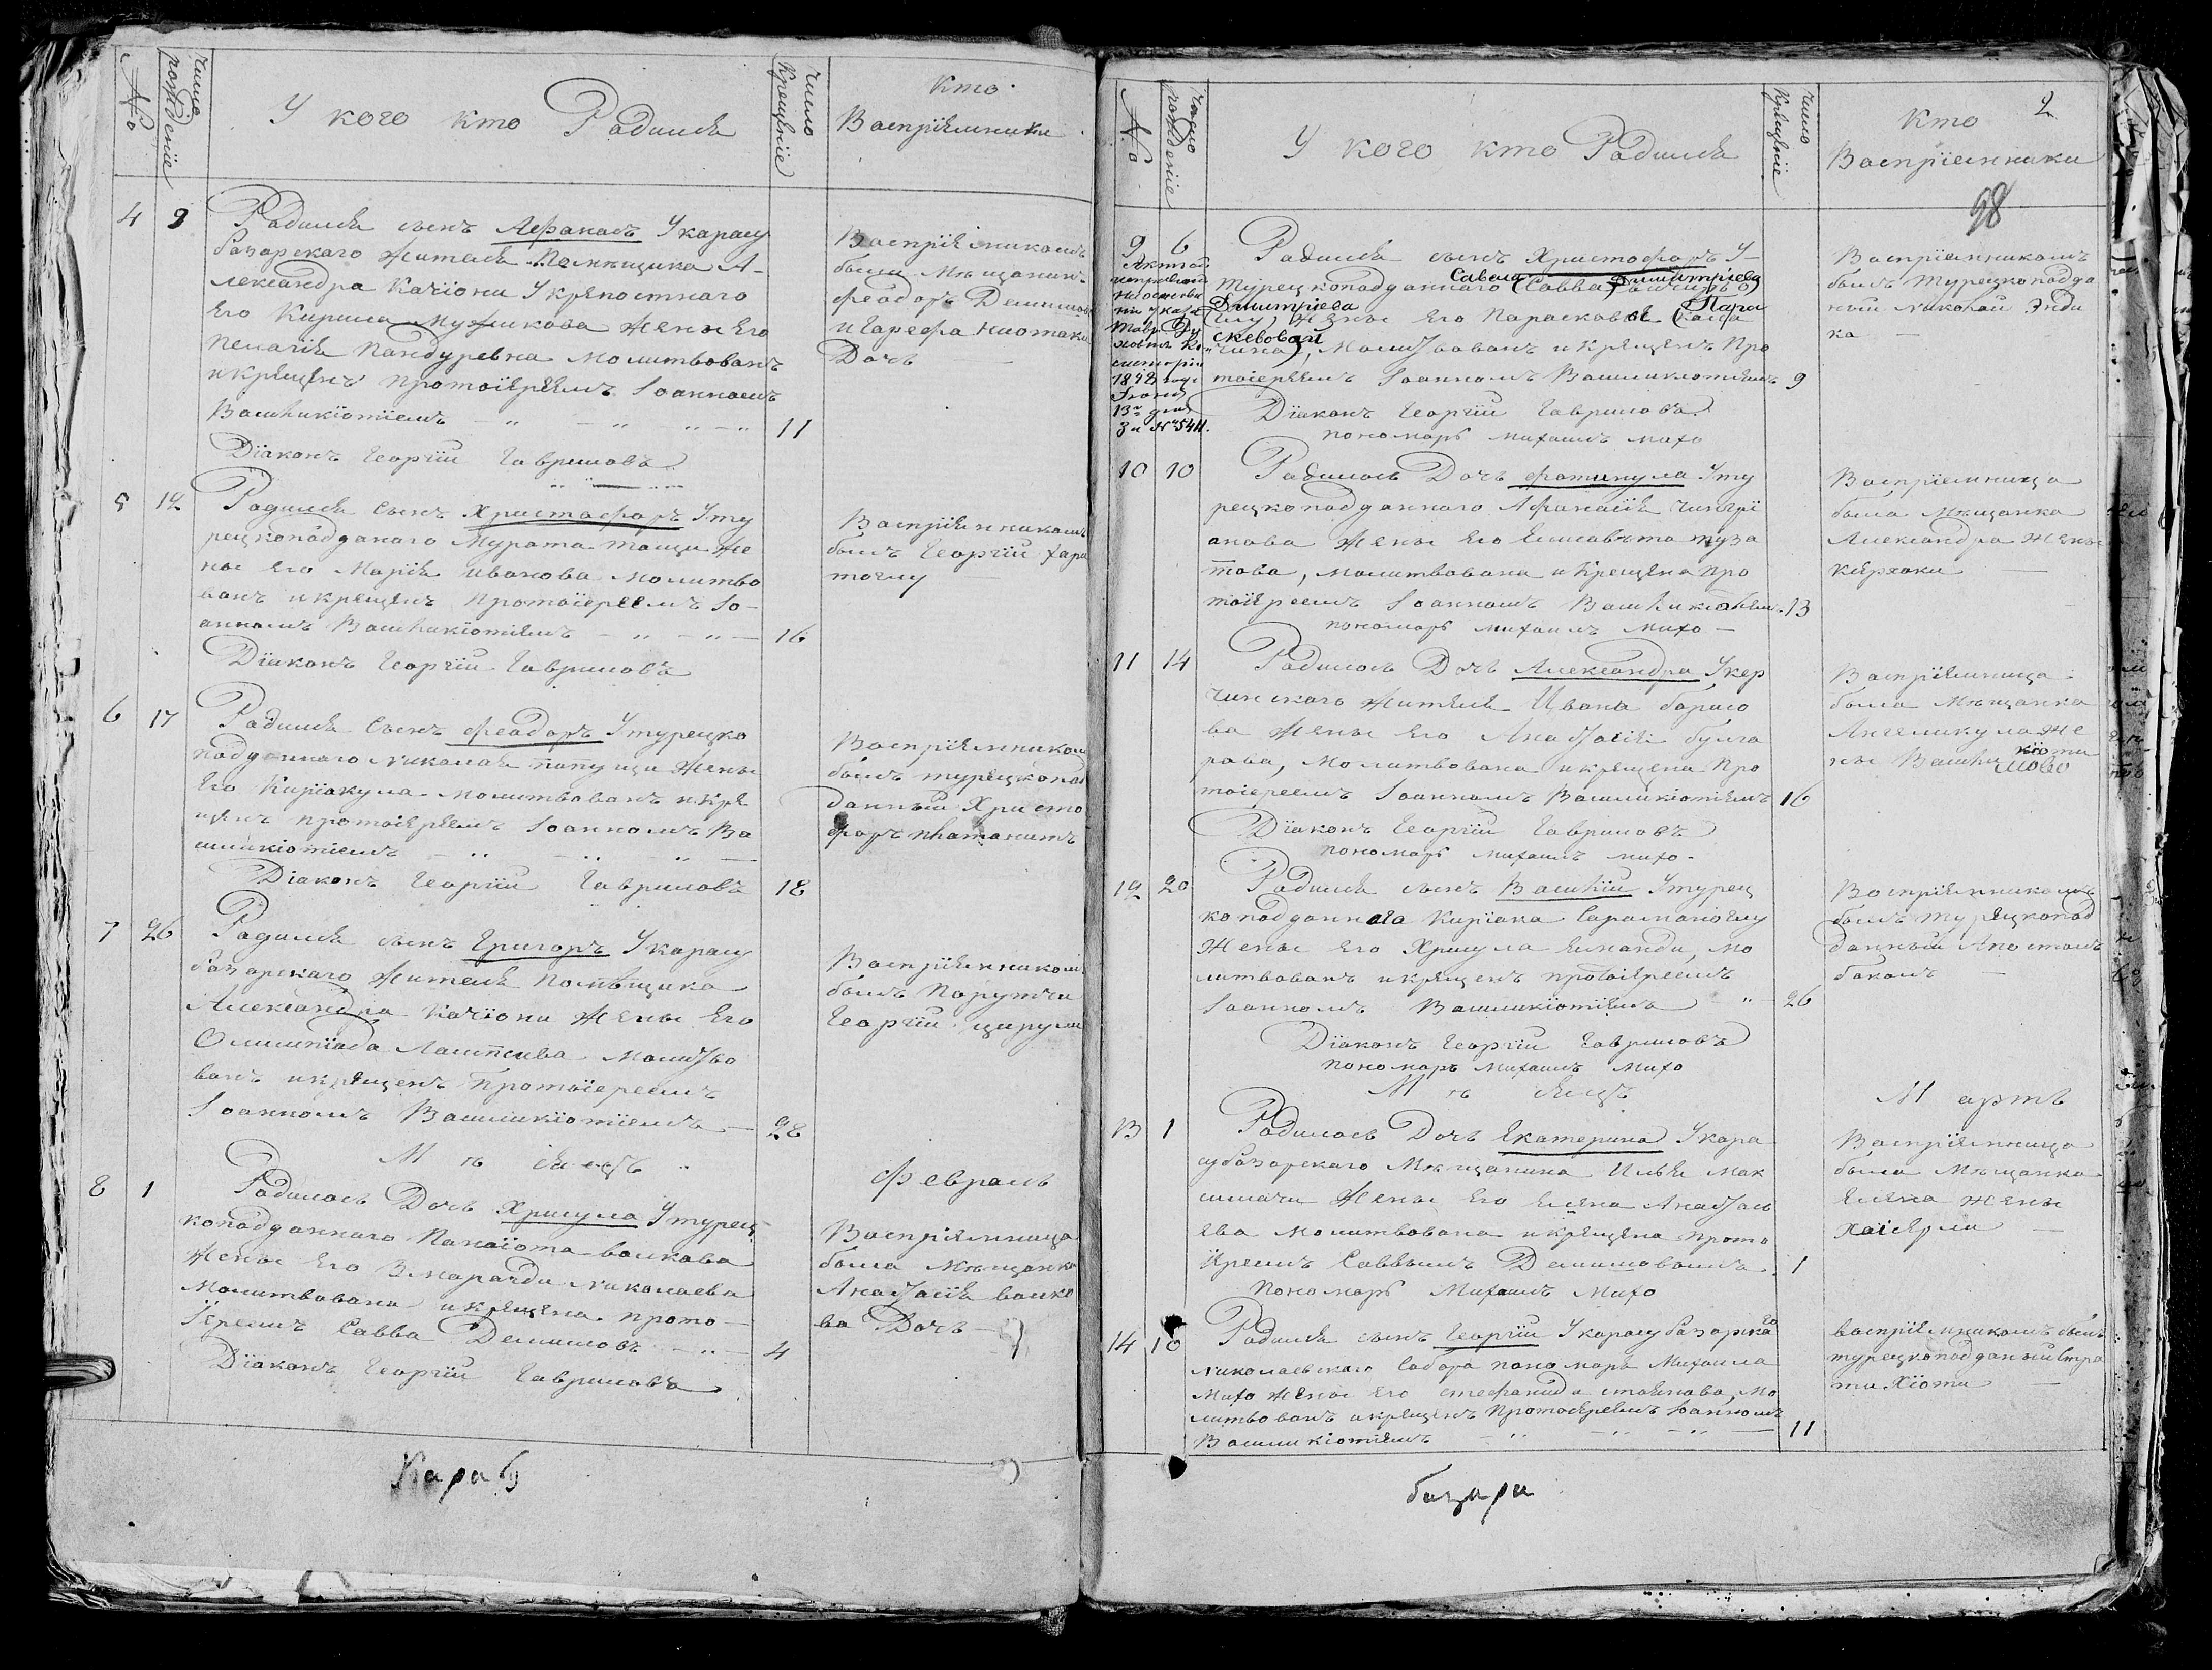 №
число рождение
У кого кто Радился
число Крещение
Кто
Васпріемники
4 9
Радился сынъ Афанасъ Укарасу
базарскаго жителя Помѣщика А-
лександра Качіони Укрепостнаго
Его Кирила Мужикова жены Его
Пелагія Пандуревна Молитвованъ
икрещенъ протоіереемъ Іоанномъ
Василикіотіемъ
11
Діаконъ Георгіи Гавриловъ
Васпріемникомъ
были Мѣщанинъ
феодоръ
и
Дочь
5 12
Родился сынъ Христофоръ Уту
рецкоподданаго Мурата жe
ны Его Марія иванова молитво
ванъ икрещенъ протоіереемъ Іо-
анномъ Василикіотіемъ
16
Діаконъ Георгіи Гавриловъ
Васпріемникомъ
былъ Георгіи Хара
тоглу
6 17
Радился сынъ феодоръ Утурецко
подданаго николая папуци жены
Его Киріакула молитвованъ икре
щенъ протоіереемъ Іоанномъ Ва
силикіотіемъ
Діаконъ Георгіи Гавриловъ
18
Васпріемником
былъ турецкопод
данный Христо
форъ
7 26
Родился сынъ Григоръ Укарасу
базарскаго жителя Помѣщика
Александра Качіони жены Его
Олимпіада молитво
ванъ икрещенъ протоіереемъ
Іоанномъ Василикіотіемъ
28
Васпріемником
былъ Порутчи
Георгіи цирули
М ѣ сяцъ
Февраль
8 1
Радилась Дочь Хрисула Утурец-
коподданнаго Панаіота волкова
жены Его Змарагди николаева
молитвована икрещена прото-
Іереемъ Савва Демишовъ
4
Діаконъ Георгіи Гавриловъ
Васпріемница
была Мѣщанка
Анастасія волко
ва Дочь
Карасу
№
число рождение
У кого кто Радился
число Крещение
Кто
Васпріемники
2
98
9 6
исправленъ
на основа
ніи указа
Тавр. Ду
ховной Кон
систоріи
1842 года
Іюня
13го дня
За № 5411.
Радился сынъ Христофоръ У-
Савы Димитріева
турецкоподданнаго (Савва
Димитріева (Пара
жены Его Парасковія
скевовой
молитвованъ икрещенъ про
тоіереемъ Іоанномъ Василикіотіемъ
9
Діаконъ Георгіи Гавриловъ
пономаръ михаилъ михо
Васпріемникомъ
былъ турецкоподда
ный николаи Энди
ка
10 10
Радилась Дочь фотинула Уту
рецкоподданнаго Афанасія чингрі
анова жены Его Елисавѣта туза
това, молитвована икрещена про
тоіереемъ Іоанномъ Василикіотіем.
13
пономаръ михаилъ михо
Васпріемница
была Мѣщанка
Александра жены
керхаки
11 14
Радилась Дочь Александра Укер
чинскаго жителя Ивана борисо
ва жены Его Анастасія булга
рова, молитвована икрещена про
тоіереемъ Іоанномъ Василикіотіемъ
16
Діаконъ Георгіи Гавриловъ
пономаръ михаилъ михо
Васпріемница
была Мѣщанка
Ангеликула же
кіоти
ны Васили
12 20
Радился сынъ Василіи Утурец
коподданнаго Киріака Сараманоглу
жены Его Хрисула Еманди, мо
литвованъ икрещенъ протоіереемъ
Іоанномъ Василикіотіемъ
26
Діаконъ Георгіи Гавриловъ
пономаръ михаилъ михо
Васпріемникомъ
былъ турецкопод
данный Апостолъ
баколъ
М ѣ сяцъ
М артъ
13 1
Радилась Дочь Екатерина Укара
субазарскаго Мѣщанина Илья Мак
симачи жены Его Елена Анастась
ева молитвована икрещена прото
іереемъ Саввымъ Демишовымъ
1
пономаръ Михаилъ Михо
Васпріемница
была Мѣщанка
Елена жены
Хаіерли
14 10
Радился сынъ Георгіи Укарасубазарскаго
николаевскаго Собора пономаръ Михаила
Михо жены Его стефанида стаянова, мо
литвованъ икрещенъ Протоіереемъ Іоанномъ
Василикіотіемъ
11
васпріемникомъ былъ
турецкоподданый Стра
ти Хіоти
базара